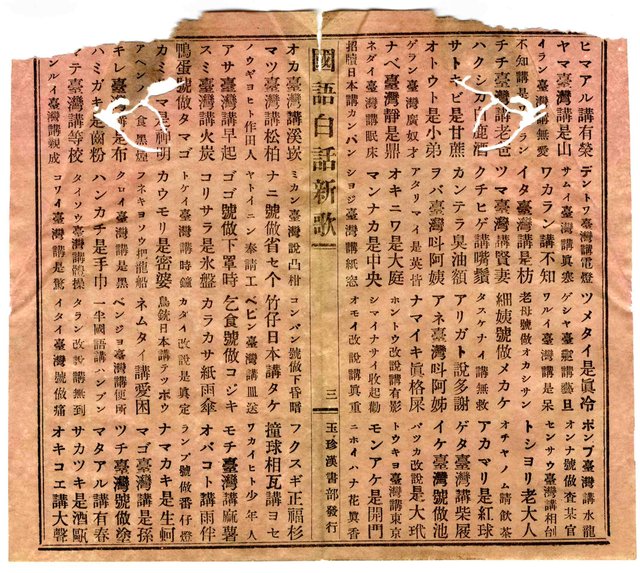 ヒマアル講有榮 デントワ臺灣講電燈 ツメタイ是眞冷 ポンプ臺灣講水龍
ヤマ臺灣講是山 サムイ臺灣講眞寒 ゲシヤ臺慰講藝旦 オンナ號做查某官
イラン臺灣講無愛 ワカラン講不知 ワルイ臺灣講是呆 センサウ臺灣講相刣
不知講是 イタ臺灣講是枋 老母號做オカシサン トシヨリ老大人
チチ臺灣講老爸 ツマ臺灣講賢妻 細姨號做メカケ オチヤノム請飲茶
ハクシカ日鹿酒 クチヒゲ講嘴鬚 タスケナイ講無救 アカマリ是紅球
サトキビ是甘蔗 カンテラ臭油額 アリガト說多謝 ゲタ臺灣講柴屐
オトウト是小弟 ヲバ臺灣呌阿姆 アネ臺灣呌阿姊 イケ臺灣號做池
ゲラン臺灣廣奴才 アタリマイ是英皆 ナマイキ眞格屎 バツカ改說是大玳
ナベ臺灣靜是鼎 オキニワ是大庭 ホントウ改說講有影 トウキヨ臺灣講東京
ネダイ臺灣講眠床 マンナカ是中央 シマイナサイ收起動 モンアケ是開門
招牌日本講カンバン シヨジ臺灣講紙窓 オモイ改說講眞重 ニホイハナ花眞香
國語白話新歌 三 玉珍漢書部發行
オカ臺灣講溪崁 ミカン臺灣說凸柑 コンバン號做下昏暗 フクスギ正福杉
マツ臺灣講松柏 ナニ號做省乜个 竹仔日本講タケ 撞球相瓦講ヨセ
ノウギヨヒト作田人 ヤトイニン奉請工 ベピン臺灣講皿送 ワカイヒト少年人
アサ臺灣講早起 ゴゴ號做下罩時 乞食號做コジキ モチ臺灣講麻薯
スミ臺灣講火炭 コリサラ是氷盤 カラカサ紙雨傘 オバコト講雨伴
鴨蛋號做タマゴ トケイ臺灣講時鐘 カダイ改說是眞定 ランプ號做番仔燈
カミサマ是神明 カウモリ是密婆 鳥銃日本講テツポウ ナマカキ是生蚵
アヘン 食黑煙 フネキヨソウ把龍船 ネムタイ講愛困 マゴ臺灣講是孫
キレ臺灣講是布 クロイ臺灣講是黑 ベンジヨ臺灣講便所 ツチ臺灣講號做塗
ハミガキ是齒粉 ハンカチ是手巾 一半國語講ハンブン マタアル講有春
マテ臺灣講等校 タイソウ臺灣講體操 タラン改說講無到 サカツキ是酒甌
ンルイ臺灣講親成 コワイ臺灣講是驚 イタイ臺灣號做痛 オキコエ講大聲